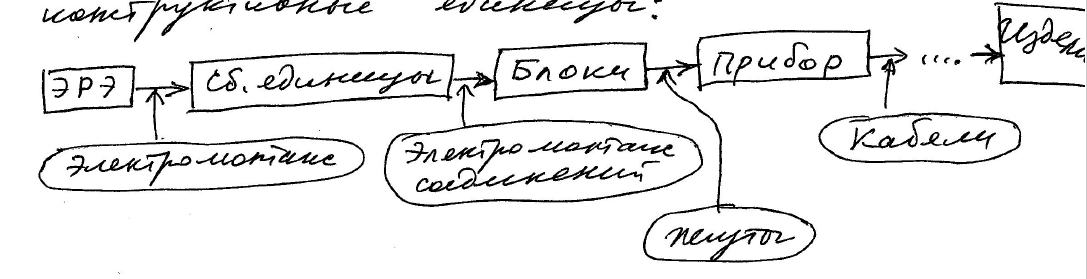 конструктивные единицы:
ЭРЭ → Сб. единицы → Блоки → Прибор → .... →
Электромонтаж
Электромонтаж
соединений
Кабели
жгуты